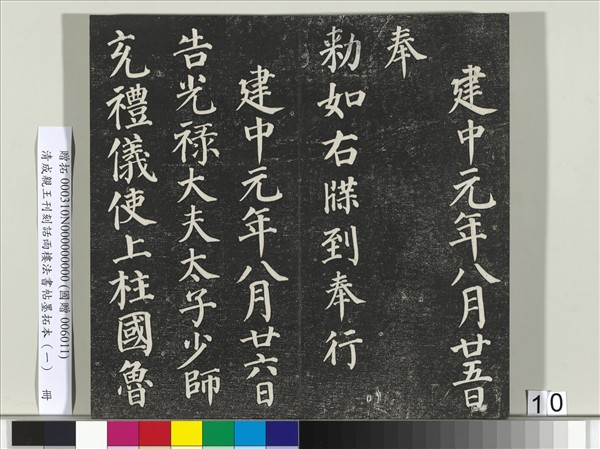 建中元年八月廿五日
奉
勑如右牒到奉行
建中元年八月廿六日
告光祿大夫太子少師
充禮儀使上柱國魯
贈拓 000310N000000000 (國贈 006011)
清成親王刊刻詒晉樓法書帖墨拓本(一) 冊
10